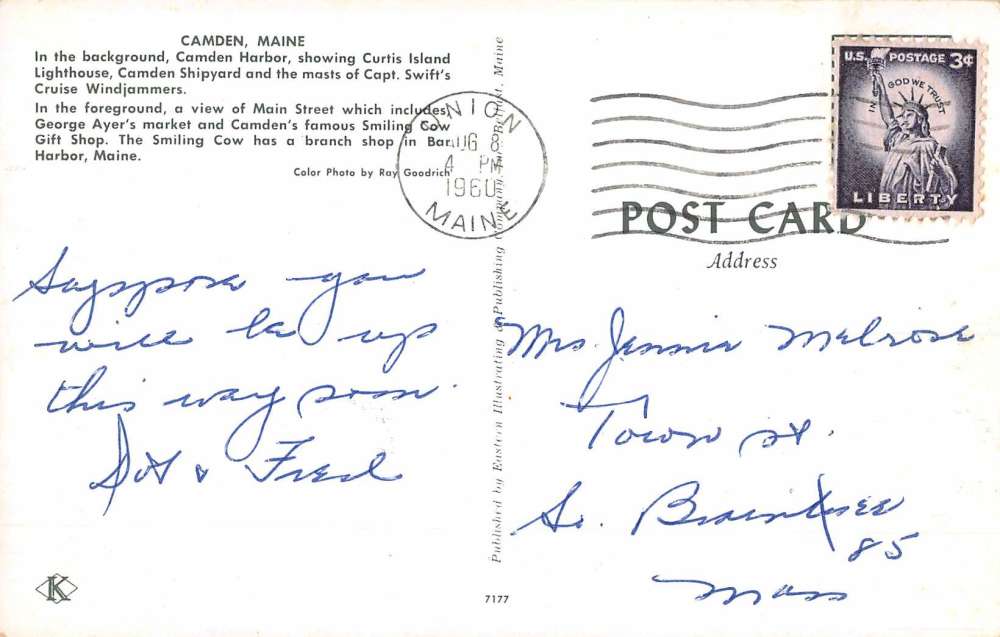 CAMDEN, MAINE
In the background, Camden Harbor, showing Curtis Island
Lighthouse, Camden Shipyard and the masts of Capt. Swift's
Cruise Windjammers.
In the foreground, a view of Main Street which includes
George Ayer's market and Camden's famous Smiling Cow
Gift Shop. The Smiling Cow has a branch shop in Bar
Harbor, Maine.
Color Photo by Ray Goodrich
Suppose you
will be up
this way soon.
Dot & Fred
K
Published by Eastern Illustrating & Publishing Company, Inc., Belfast, Maine
7177
UNION
AUG 8
4 PM
1960
MAINE
U.S. POSTAGE 3¢
IN GOD WE TRUST
LIBERTY
POST CARD
Address
Mrs. Jennie Melrose
Town st.
So. Braintree
85
Mass